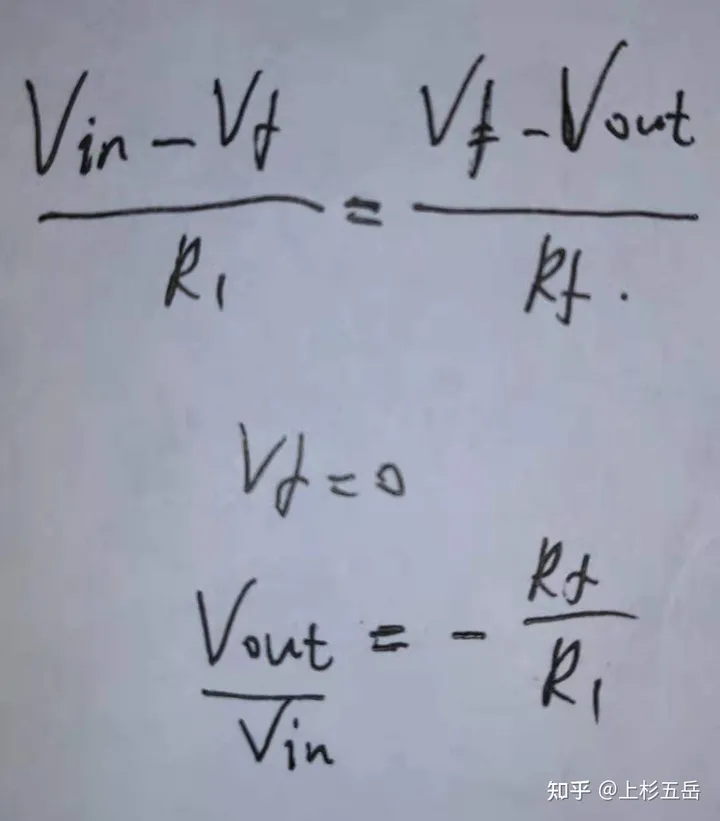 Vin - Vf / R1 = Vf - Vout / Rf.
Vf = 0
Vout / Vin = - Rf / R1
知乎 @上杉五岳